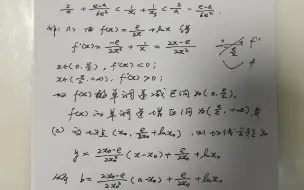 2/a + (e-a)/(6e²) < 1/x₁ + 1/x₃ < 2/a - (e-a)/(6e²).
解: (1) 由 f(x) = e/(2x) + lnx 得
f'(x) = -e/(2x²) + 1/x = (2x-e)/(2x²)
x∈(0, e/2), f'(x)<0;
x∈(e/2, +∞), f'(x)>0;
f(x) 的单调递减区间为 (0, e/2),
f(x) 的单调递增区间为 (e/2, +∞)
(2) 设切点 (x₀, e/(2x₀) + lnx₀), 则切线方程
y = (2x₀-e)/(2x₀²) (x-x₀) + e/(2x₀) + lnx₀
b = (2x₀-e)/(2x₀²) (a-x₀) + e/(2x₀) + lnx₀